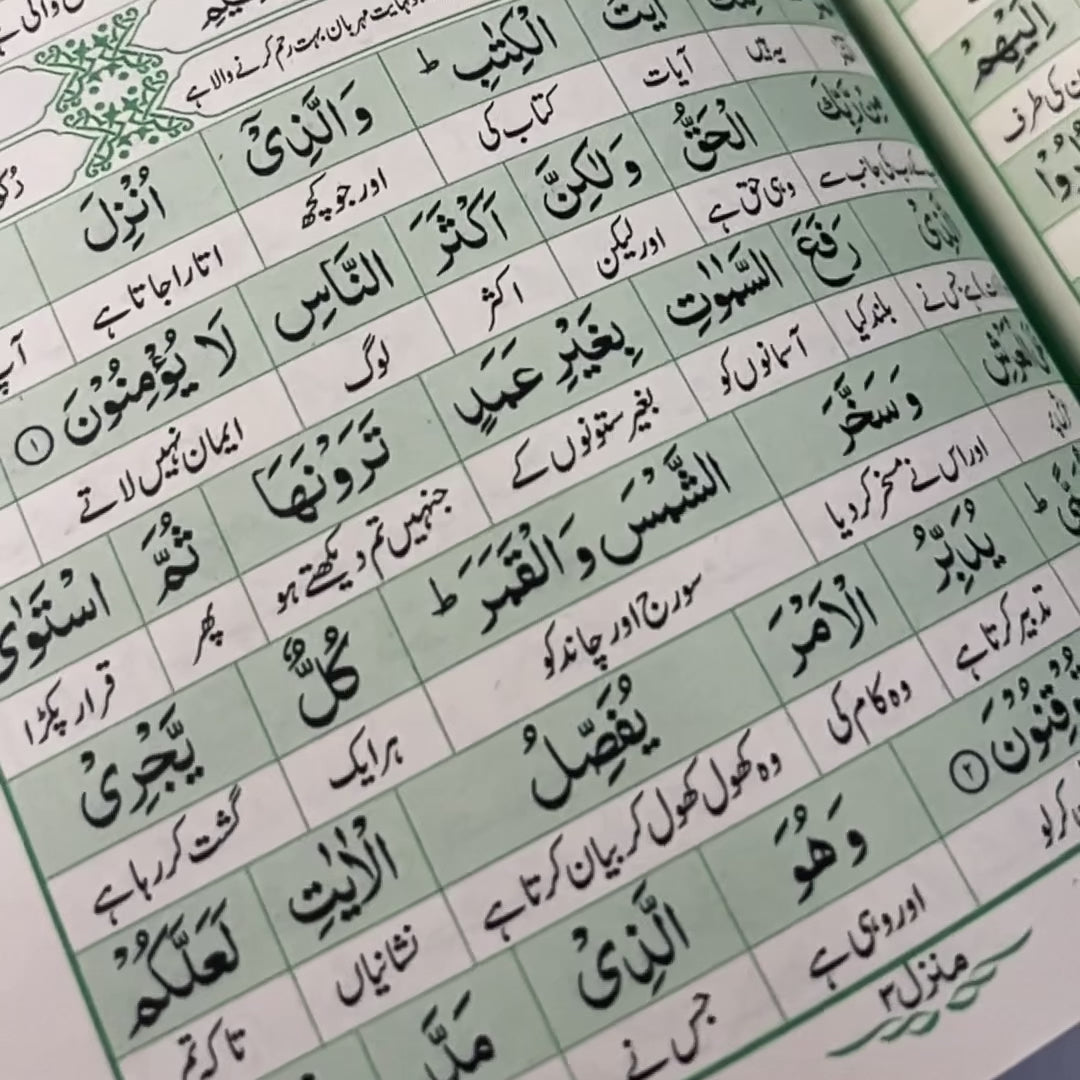 نہایت مہربان بہت رحم کرنے والا ہے
الْكِتٰبِ ؕ وَالَّذِیْۤ اُنْزِلَ
یہ ہیں آیات کتاب کی اور جو کچھ اتارا جاتا ہے
الْحَقُّ وَلٰكِنَّ اَكْثَرَ النَّاسِ لَا یُؤْمِنُوْنَ ۱
وہی حق ہے اور لیکن اکثر لوگ ایمان نہیں لاتے
رَفَعَ السَّمٰوٰتِ بِغَیْرِ عَمَدٍ تَرَوْنَهَا ثُمَّ اسْتَوٰی
جس نے بلند کیا آسمانوں کو بغیر ستونوں کے جنہیں تم دیکھتے ہو پھر قرار پکڑا
وَسَخَّرَ الشَّمْسَ وَالْقَمَرَ ؕ كُلٌّ یَّجْرِیْ
اور اس نے مسخر کر دیا سورج اور چاند کو ہر ایک گشت کر رہا ہے
یُدَبِّرُ الْاَمْرَ یُفَصِّلُ الْاٰیٰتِ لَعَلَّكُمْ
تدبیر کرتا ہے وہ کام کی وہ کھول کھول کر بیان کرتا ہے نشانیاں تاکہ تم
۲ وَهُوَ الَّذِیْ مَدَّ
اور وہی ہے جس نے
منزل ۳
اِلَیْهِمْ
کی طرف